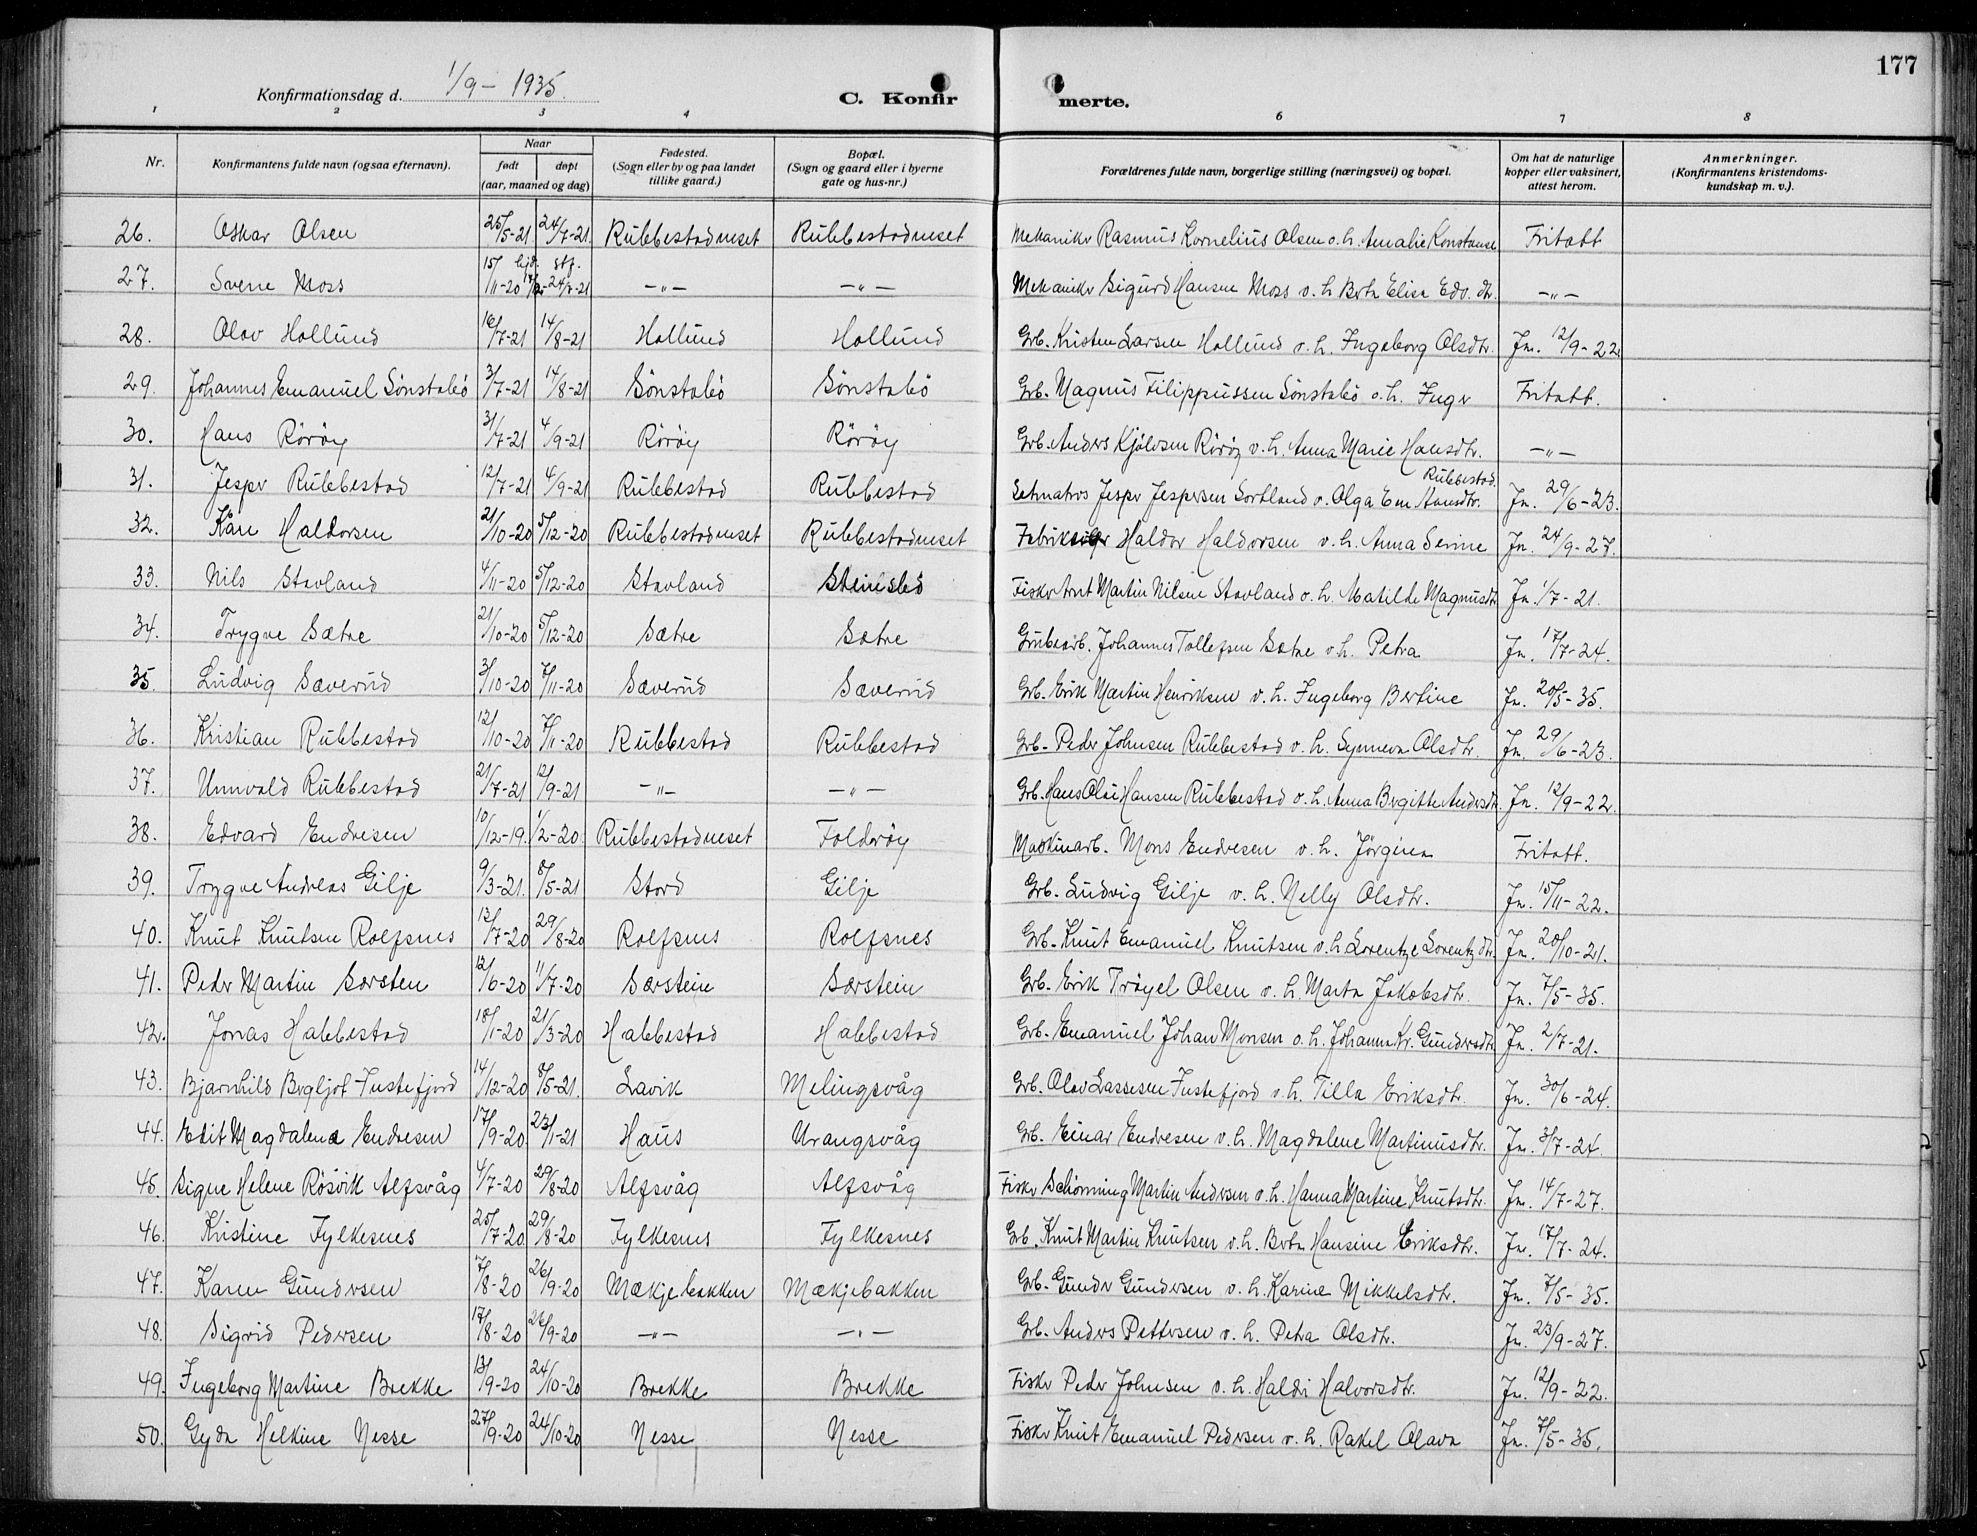 177
Konfirmationsdag d. 1/9 - 1935.
C. Konfirmerte.
1 2 3 4 6 7 8
Nr. Konfirmantens fulde navn (ogsaa efternavn). Naar født døpt (aar, maaned og dag) Fødested. (Sogn eller by og paa landet tillike gaard.) Bopæl. (Sogn og gaard eller i byerne gate og hus-nr.) Forældrenes fulde navn, borgerlige stilling (næringsvei) og bopæl. Om hat de naturlige kopper eller vaksinert, attest herom. Anmerkninger. (Konfirmantens kristendomskundskap m. v.).
26. Oskar Olsen 25/5-21 24/7-21 Rubbestadneset Rubbestadneset Mekanikr Rasmus Kornelius Olsen o.h. Amalie Konstanse Fritatt
27. Sverre Moss 15/11-20 hjd. stf. 24/7-21 -"- -"- Mekanikr Sigurd Hansen Moss o.h. Berta Elisa Edv. dtr. -"-
28. Olav Hollund 16/7-21 14/8-21 Hollund Hollund Grb. Kristen Larsen Hollund o.h. Ingeborg Olsdtr. Ja. 12/9-22
29. Johannes Emanuel Sønstabø 3/7-21 14/8-21 Sønstabø Sønstabø Grb. Magnus Filippussen Sønstabø o.h. Inger Fritatt.
30. Hans Röröy 31/7-21 4/9-21 Röröy Röröy Grb. Anders Kjölvsen Röröy o.h. Anna Marie Hansdtr. -"-
31. Jesper Rubbestad 12/7-21 4/9-21 Rubbestad Rubbestad Jesper Jespersen Sortland o. Olga Em. Hansdtr. Rubbestad. Ja. 29/6-23.
32. Kåre Haldorsen 21/10-20 5/12-20 Rubbestadneset Rubbestadneset Haldor Haldorsen o.h. Anna Serine Ja. 24/9-27.
33. Nils Stavland 4/11-20 5/12-20 Stavland Steinsbö Fisker Arnt Martin Nilsen Stavland o.h. Matilde Magnusdtr. Ja. 1/7-21.
34. Trygve Sætre 21/10-20 5/12-20 Sætre Sætre Grubearb. Johannes Tollefsen Sætre o.h. Petra Ja. 17/7-24.
35. Ludvig Sæverud 3/10-20 7/11-20 Sæverud Sæverud Grb. Erik Martin Henriksen o.h. Ingeborg Bertine Ja. 20/5-35.
36. Kristian Rubbestad 12/10-20 7/11-20 Rubbestad Rubbestad Grb. Peder Johnsen Rubbestad o.h. Synneva Olsdtr. Ja. 29/6-23.
37. Unnvald Rubbestad 21/7-21 12/9-21 -"- -"- Grb. Hans Olai Hansen Rubbestad o.h. Anna Brgitte Andrsdtr. Ja. 12/9-22.
38. Edvard Endresen 10/12-19. 1/2-20 Rubbestadneset Foldröy Maskinarb. Mons Endresen o.h. Jörgine Fritatt.
39. Trygve Andreas Gilje 9/3-21. 8/5-21 Stord Gilje Grb. Ludvig Gilje o.h. Nelly Olsdtr. Ja. 15/11-22.
40. Knut Knutsen Rolfsnes 13/7-20 29/8-20 Rolfsnes Rolfsnes Grb. Knut Emanuel Knutsen o.h. Lorentze Lorentzdtr. Ja. 20/10-21.
41. Peder Martin Sørsten 12/6-20 11/7-20 Sørstein Sørstein Grb. Erik Tröyel Olsen o.h. Marta Jakobsdtr. Ja. 7/5-35.
42. Jonas Habbestad 18/1-20 21/3-20 Habbestad Habbestad Grb. Emanuel Johan Monsen o.h. Johanna Kr. Gundersdtr. Ja. 2/7-21.
43. Bjarnhild Brgljot Tustefjord 14/12-20 8/5-21. Lavik Melingsvåg Grb. Olav Lassesen Tustefjord o.h. Tilla Eriksdtr. Ja. 30/6-24.
44. Edit Magdalena Endresen 17/9-20 23/1-21 Haus Urangsvåg Grb. Einar Endresen o.h. Magdalene Martinusdtr. Ja. 3/7-24.
45. Signe Helene Rösvik Alfsvåg 4/7-20 29/8-20 Alfsvåg Alfsvåg Fisker Schönning Martin Andersen o.h. Hanna Martine Knutsdtr. Ja. 14/7-27.
46. Kristine Fylkesnes 25/7-20 29/8-20 Fylkesnes Fylkesnes Grb. Knut Martin Knutsen o.h. Berta Hansine Eriksdtr. Ja. 17/7-24.
47. Karen Gundersen 7/8-20 26/9-20 Mækjebakken Mækjebakken Grb. Gunder Gundersen o.h. Karine Mikkelsdtr. Ja. 7/5-35.
48. Sigrid Pedersen 17/8-20 26/9-20 -"- -"- Grb. Anders Pettersen o.h. Petra Olsdtr. Ja. 23/9-27.
49. Ingeborg Martine Brekke 13/9-20 24/10-20 Brekke Brekke Fisker Peder Johnsen o.h. Haldri Halvorsdtr. Ja. 12/9-22.
50. Gyda Helkine Nesse 27/9-20 24/10-20 Nesse Nesse Fisker Knut Emanuel Pedersen o.h. Rakel Olava Ja. 7/5-35.